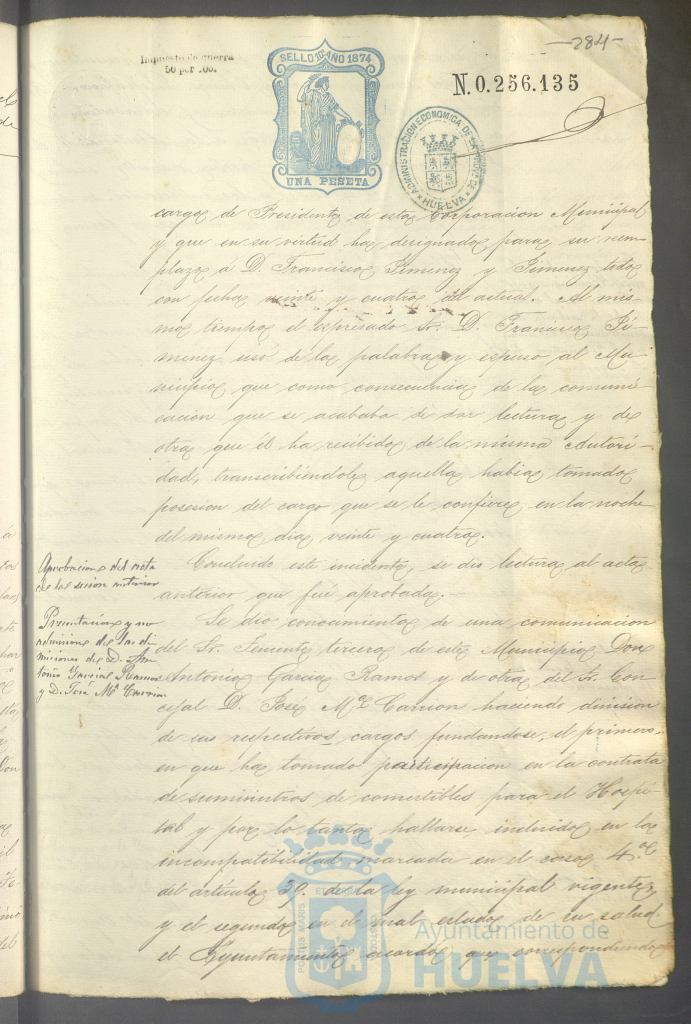 -284-
Impuesto de guerra
50 por 100.
SELLO 10º AÑO 1874
UNA PESETA
N.0.256.135
ADMINISTRACION ECONOMICA DE LA PROV. DE HUELVA
cargo de Presidente de esta Corporacion Municipal
y que en su virtud ha designado para su reem-
plazo á D. Francisco Jimenez y Jimenez todo
con fecha veinte y cuatro del actual. Al mis-
mo tiempo el espresado Sr. D. Francisco Ji-
menez usó de la palabra y espuso al Mu-
nicipio que como consecuencia de la comuni-
cacion que se acababa de dar lectura y de
otra que él ha recibido de la misma Autori-
dad, transcribiendole aquella habia tomado
posesion del cargo que se le confiere en la noche
del mismo dia veinte y cuatro.
Aprobacion del acta
de la sesion anterior
Concluido este incidente, se dio lectura al acta
anterior que fué aprobada.
Presentacion y no
admision de las di-
misiones de D. An-
tonio Garcia Ramos
y D. José Mª Carrion
Se dio conocimiento de una comunicacion
del Sr. Teniente tercero de este Municipio Don
Antonio Garcia Ramos y de otra del Sr. Con-
cejal D. José Mª Carrion haciendo dimision
de sus respectivos cargos fundandose, el primero
en que ha tomado participacion en la contrata
de suministros de comestibles para el Hospi-
tal y por lo tanto hallarse incluido en la
incompatibilidad marcada en el caso 4.º
del artículo 39. de la ley municipal vigente,
y el segundo en el mal estado de su salud.
el Ayuntamiento acordó que correspondiendo
Ayuntamiento de
HUELVA